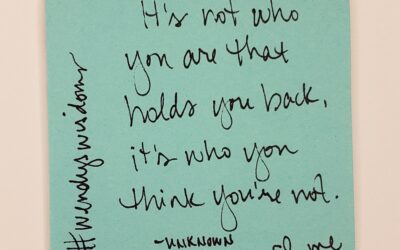 It's not who
you are that
holds you back,
it's who you
think you're not.
-UNKNOWN
#wendyswisdoms